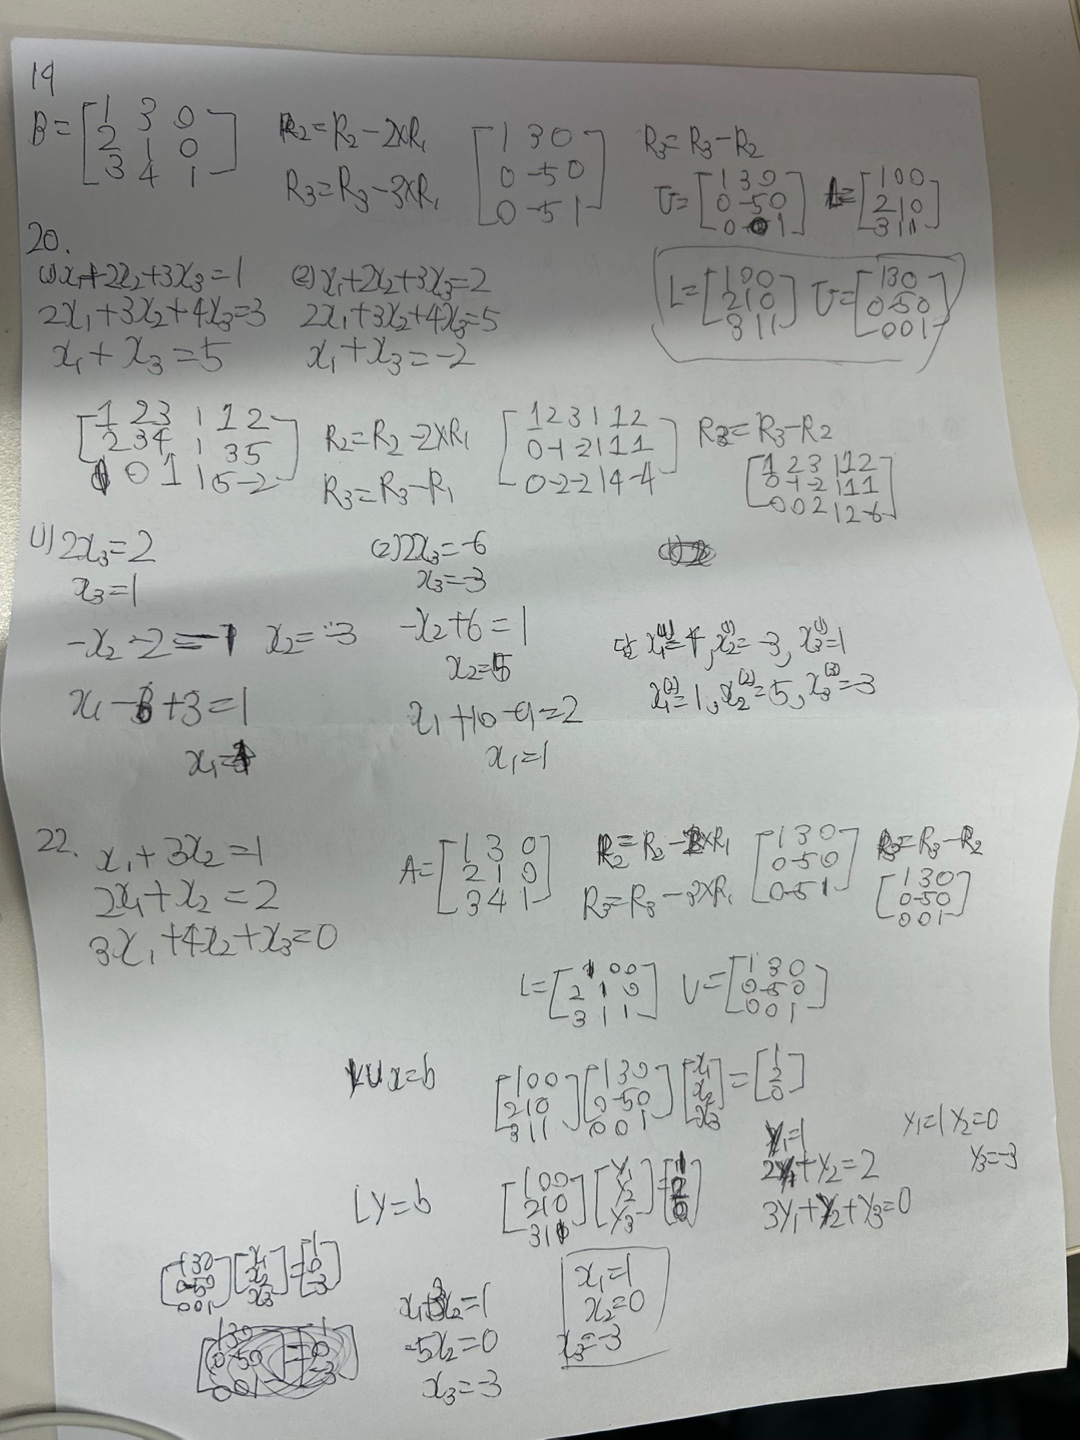 19
B = [1 3 0; 2 1 0; 3 4 1] R2 = R2 - 2×R1 R3 = R3 - 3×R1 [1 3 0; 0 -5 0; 0 -5 1] R3 = R3 - R2
U = [1 3 0; 0 -5 0; 0 0 1] L = [1 0 0; 2 1 0; 3 1 1]
L = [1 0 0; 2 1 0; 3 1 1] U = [1 3 0; 0 -5 0; 0 0 1]
20.
(1) x1 + 2x2 + 3x3 = 1
2x1 + 3x2 + 4x3 = 3
x1 + x3 = 5
(2) x1 + 2x2 + 3x3 = 2
2x1 + 3x2 + 4x3 = 5
x1 + x3 = -2
[1 2 3 | 1 2; 2 3 4 | 3 5; 1 0 1 | 5 -2] R2 = R2 - 2×R1 R3 = R3 - R1 [1 2 3 | 1 2; 0 -1 -2 | 1 1; 0 -2 -2 | 4 -4] R3 = R3 - R2
[1 2 3 | 1 2; 0 -1 -2 | 1 1; 0 0 2 | 2 -6]
(1) 2x3 = 2
x3 = 1
-x2 - 2 = 1 x2 = -3
x1 - 6 + 3 = 1
x1 = 4
(2) 2x3 = -6
x3 = -3
-x2 + 6 = 1
x2 = 5
x1 + 10 - 9 = 2
x1 = 1
답 x1(1) = 4, x2(1) = -3, x3(1) = 1
x1(2) = 1, x2(2) = 5, x3(2) = -3
22.
x1 + 3x2 = 1
2x1 + x2 = 2
3x1 + 4x2 + x3 = 0
A = [1 3 0; 2 1 0; 3 4 1] R2 = R2 - 2×R1 R3 = R3 - 3×R1 [1 3 0; 0 -5 0; 0 -5 1] R3 = R3 - R2
[1 3 0; 0 -5 0; 0 0 1]
L = [1 0 0; 2 1 0; 3 1 1] U = [1 3 0; 0 -5 0; 0 0 1]
LUx = b [1 0 0; 2 1 0; 3 1 1] [1 3 0; 0 -5 0; 0 0 1] [x1; x2; x3] = [1; 2; 0]
Ly = b [1 0 0; 2 1 0; 3 1 1] [y1; y2; y3] = [1; 2; 0]
y1 = 1
2y1 + y2 = 2
3y1 + y2 + y3 = 0
y1 = 1 y2 = 0
y3 = -3
[1 3 0; 0 -5 0; 0 0 1] [x1; x2; x3] = [1; 0; -3]
x1 + 3x2 = 1
-5x2 = 0
x3 = -3
x1 = 1
x2 = 0
x3 = -3